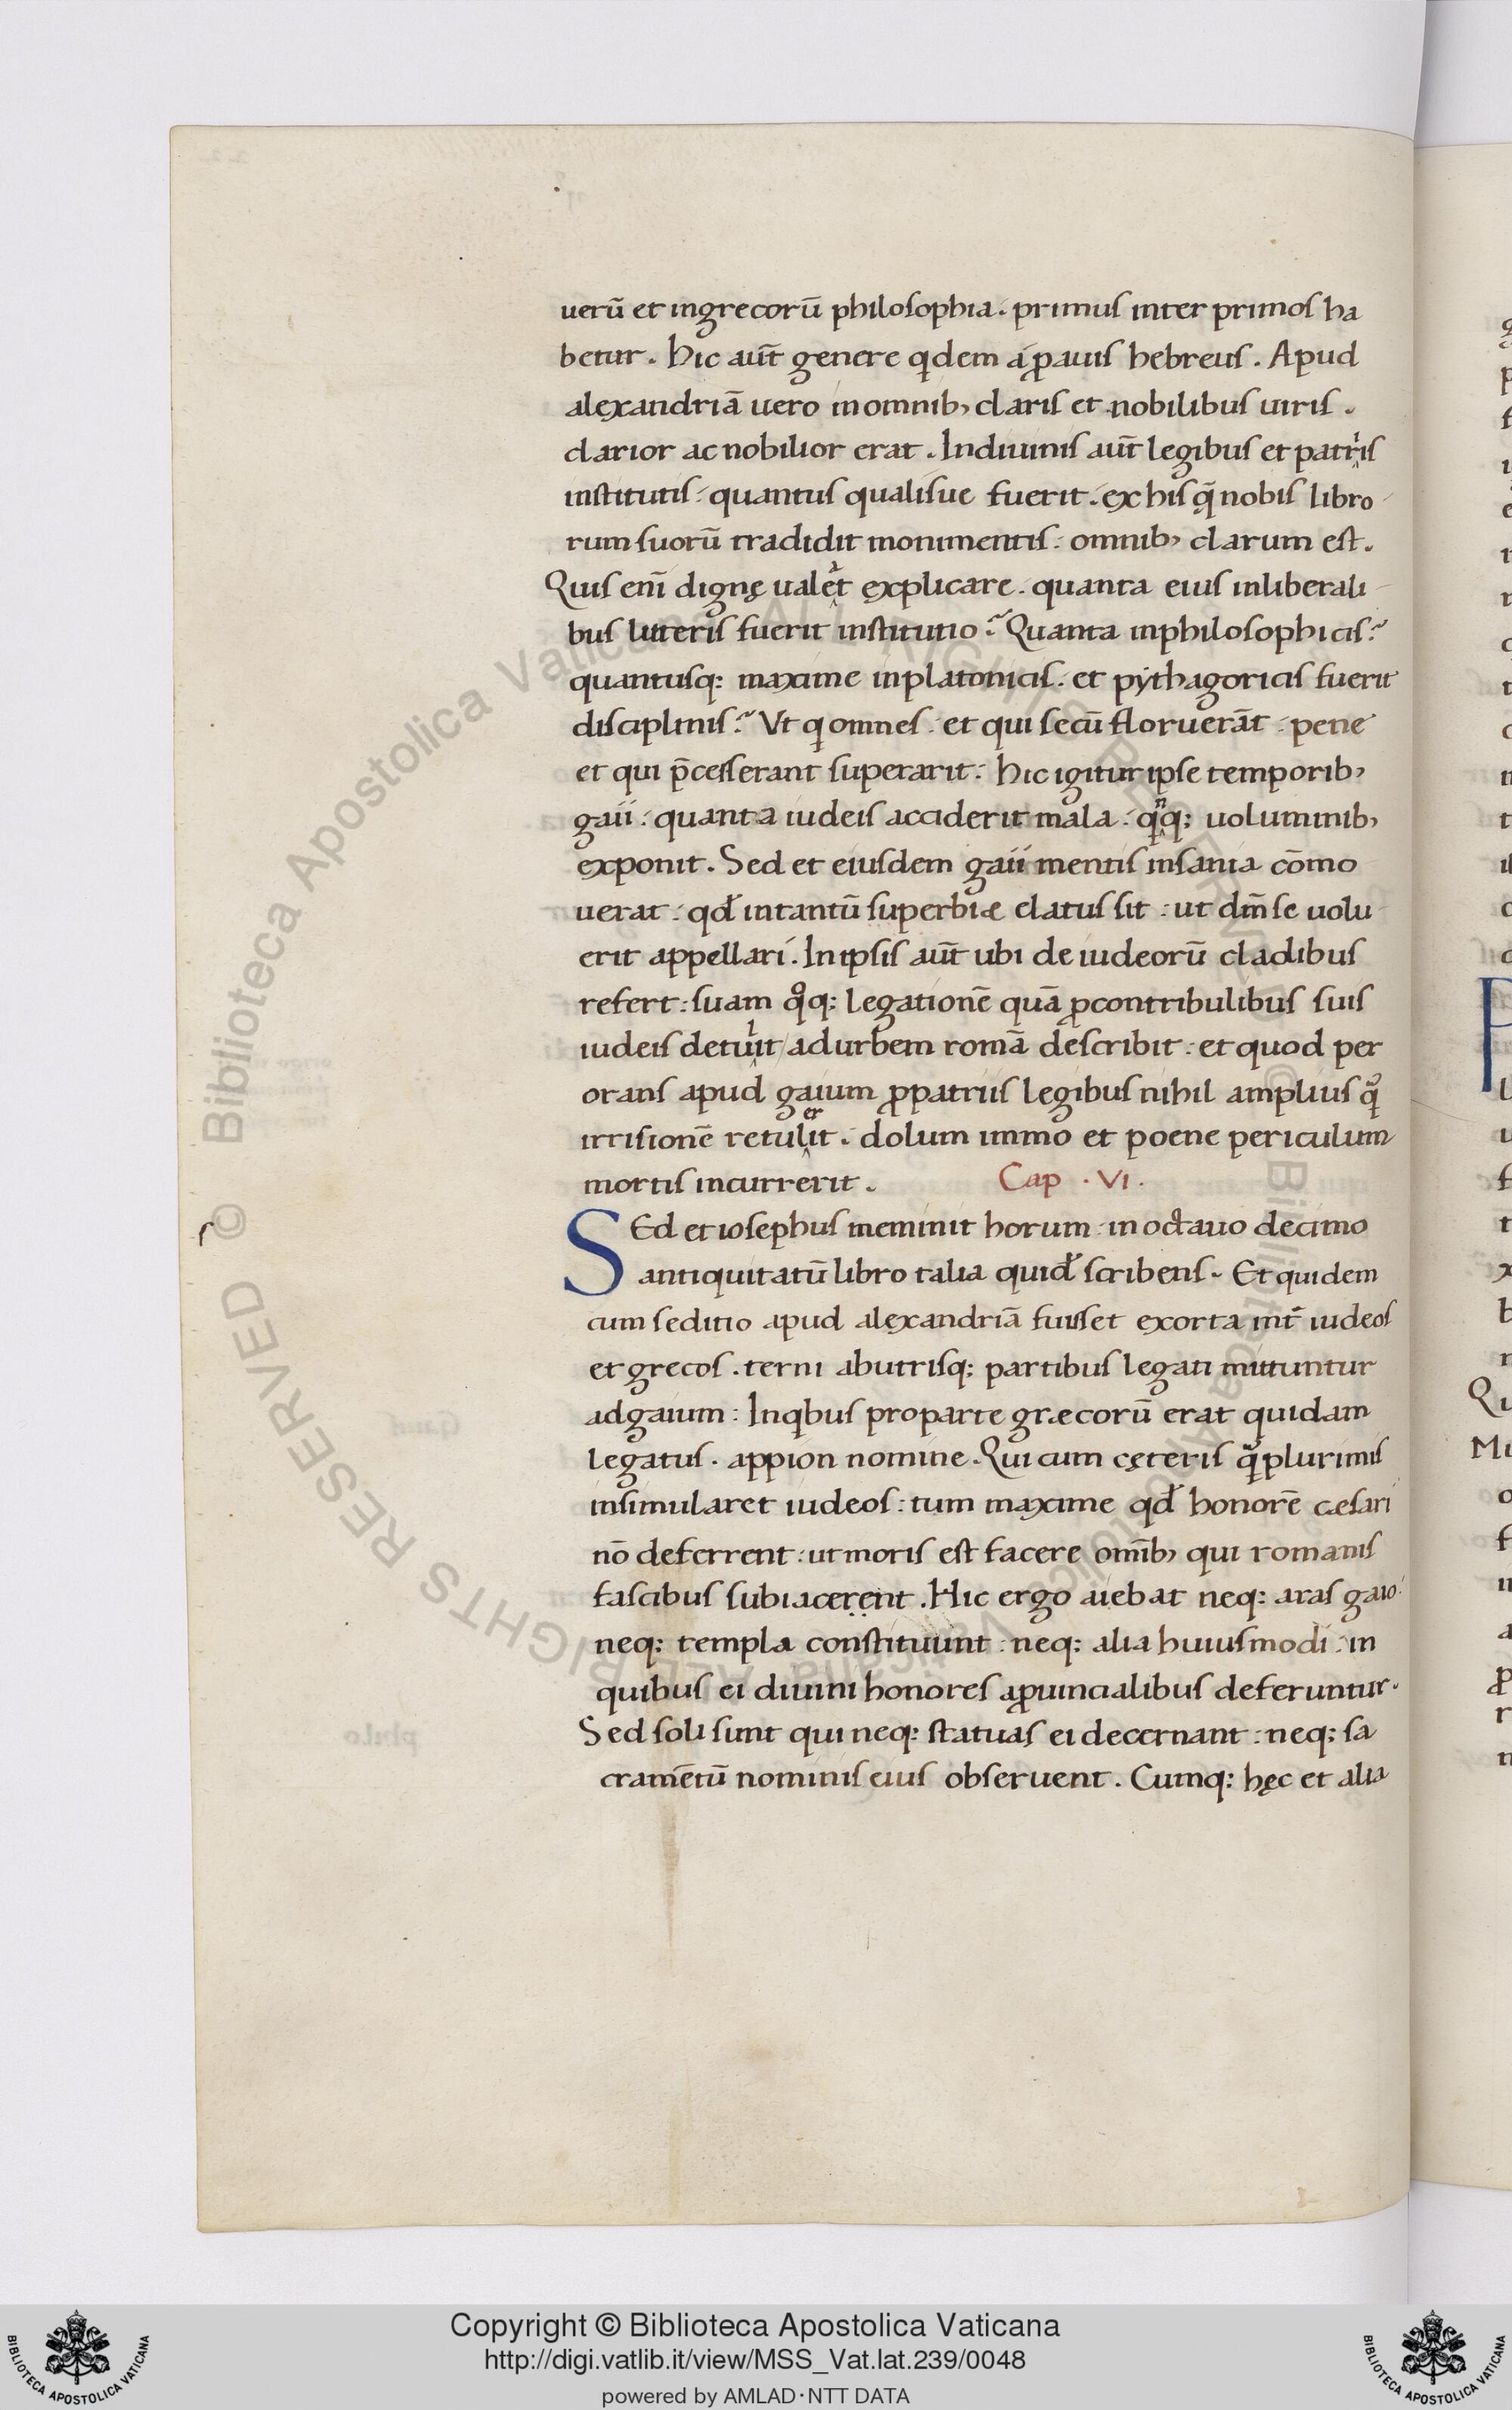 uerū et ingrecorū philosophia. primus inter primos ha
betur. hic aut̄ genere qdem a ꝓauis hebreus. Apud
alexandriā uero in omnib, claris et nobilibus uiris.
clarior ac nobilior erat. In diuinis aut̄ legibus et patriis
institutis: quantus qualisue fuerit. ex his q̄ nobis libro
rum suorū tradidit monimentis: omnib, clarum est.
Quis eni dignę ualet explicare. quanta eius inliberali
bus litteris fuerit institutio? Quanta inphilosophicis?
quantusq: maxime inplatonicis. et pythagoricis fuerit
disciplinis? Vt q omnes. et qui secū floruerāt: pene
et qui p̄cesserant superarit: hic igitur ipse temporib,
gaii: quanta iudeis acciderit mala: qnq; uoluminib,
exponit. Sed et eiusdem gaii mentis insania cōmo
uerat: qd intantū superbiæ elatus sit: ut dm̄ se uolu
erit appellari. In ipsis aut̄ ubi de iudeorū cladibus
refert: suam qoq: legationē quā ꝓcontribulibus suis
iudeis detuľit ad urbem romā describit: et quod per
orans apud gaium ꝓpatriis legibus nihil amplius qͣ
irrisionē retulerit. dolum immo et poene periculum
mortis incurrerit. Cap. VI.
SEd et iosephus meminit horum: in octauo decimo
antiquitatū libro talia quid scribens. Et quidem
cum seditio apud alexandriā fuisset exorta int̄ iudeos
et grecos. terni abutrisq; partibus legati mittuntur
adgaium: Inqbus proparte græcorū erat quidam
legatus. appion nomine. Qui cum cęteris qͣplurimis
insimularet iudeos: tum maxime qd honorē cæsari
nō deferrent: ut moris est facere omīb, qui romanis
fascibus subiacerent. Hic ergo aiebat neq: aras gaio:
neq: templa constituunt: neq: alia huiusmodi: in
quibus ei diuini honores aꝓuincialibus deferuntur.
Sed soli sunt qui neq: statuas ei decernant: neq; sa
cramētū nominis eius obseruent. Cumq: hęc et alia
Copyright © Biblioteca Apostolica Vaticana
http://digi.vatlib.it/view/MSS_Vat.lat.239/0048
powered by AMLAD·NTT DATA